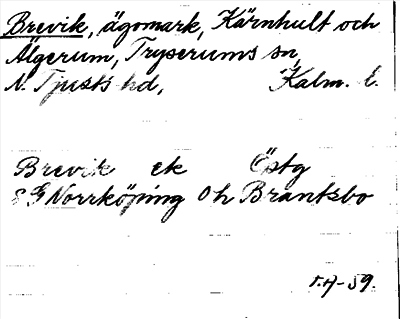 Brevik, ägomark, Kärnhult och
Älgerum, Tryserums sn,
N. Tjusts hd, Kalm. l.
Brevik ek Östg
8 G Norrköping Oh Brantsbo
-59.